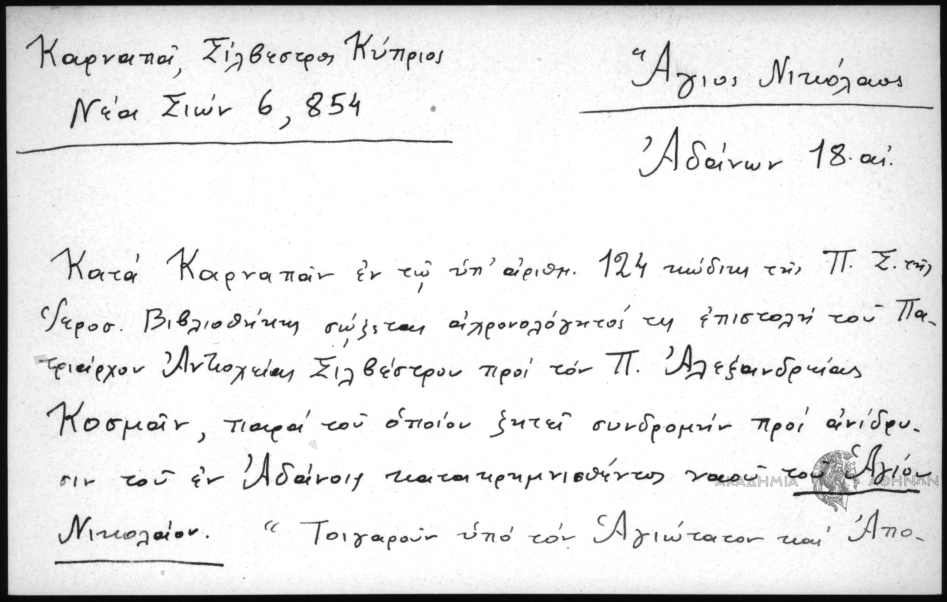 Καρναπᾶ, Σίλβεστρος Κύπριος
Νέα Σιών 6, 854
Ἅγιος Νικόλαος
Ἀδάνων 18. αἰ.
Κατά Καρναπᾶν ἐν τῷ ὑπ' ἀριθμ. 124 κώδικι τῆς Π. Σ. τῆς
Ἱεροσ. Βιβλιοθήκης σῴζεται ἀχρονολόγητός τις ἐπιστολή τοῦ Πα-
τριάρχου Ἀντιοχείας Σιλβέστρου πρός τόν Π. Ἀλεξανδρείας
Κοσμᾶν, παρά τοῦ ὁποίου ζητεῖ συνδρομήν πρός ἀνίδρυ-
σιν τοῦ ἐν Ἀδάνοις κατακρημνισθέντος ναοῦ τοῦ Ἁγίου
Νικολάου. “Τοιγαροῦν ὑπό τόν Ἁγιώτατον καί Ἀπο-
ΑΚΑΔΗΜΙΑ ΑΘΗΝΩΝ